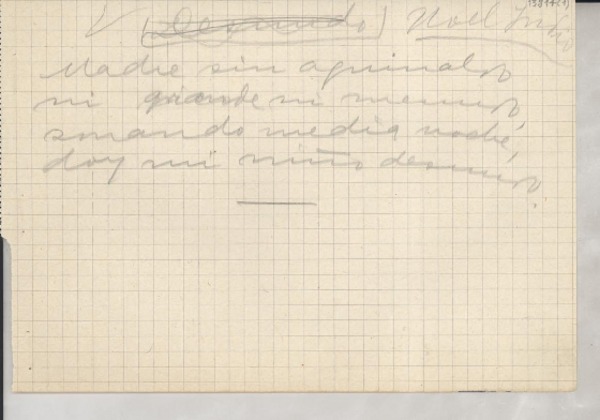 Noel Indio
Madre sin aguinaldo
ni grande ni menudo,
sonando media noche,
doy mi niño desnudo.